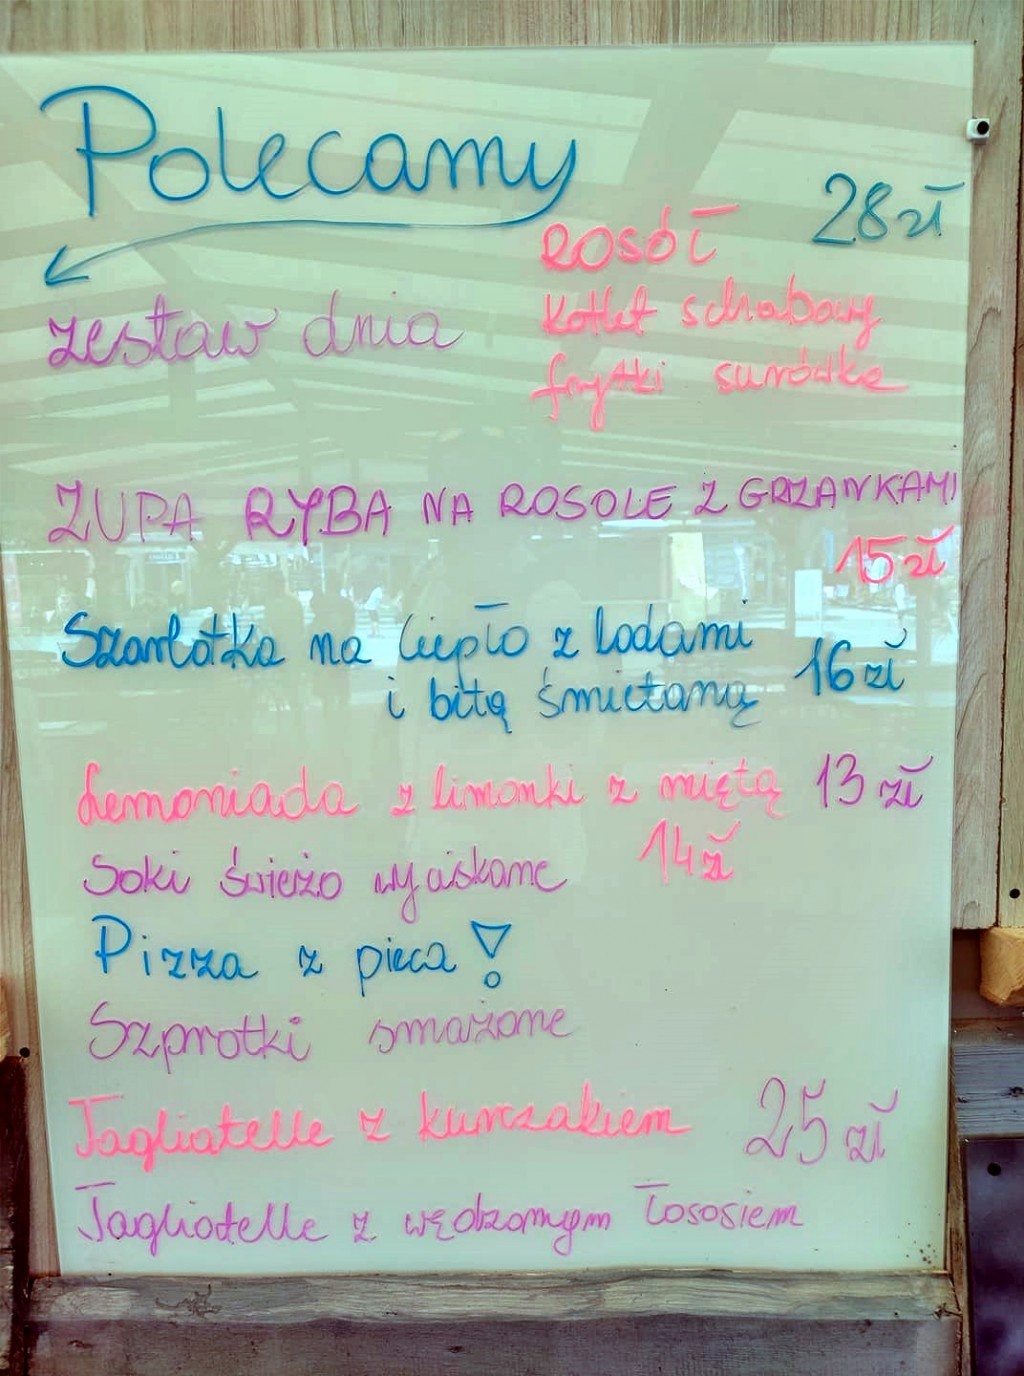 Polecamy
28 zł
ROSÓŁ
zestaw dnia
kotlet schabowy
frytki surówka
ZUPA RYBA NA ROSOLE Z GRZANKAMI
15 zł
Szarlotka na ciepło z lodami
i bitą śmietaną
16 zł
Lemoniada z limonki z miętą 13 zł
Soki świeżo wyciskane 14 zł
Pizza z pieca!
Szprotki smażone
Tagliatelle z kurczakiem 25 zł
Tagliatelle z wędzonym łososiem